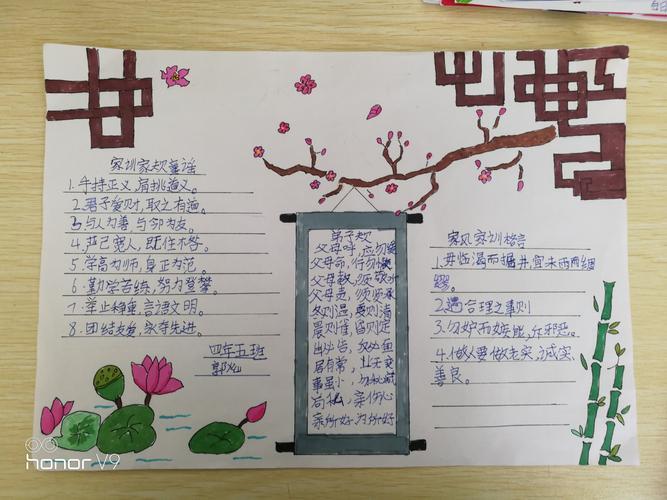 家训家规童谣
1.手持正义,肩挑道义。
2.君子爱财,取之有道。
3.与人为善,与邻为友。
4.严己宽人,既往不咎。
5.学高为师,身正为范。
6.勤学苦练,努力登攀。
7.举止稳重,言语文明。
8.团结友爱,永争先进。
四年五班
弟子规
父母呼 应勿缓
父母命,行勿懒
父母教,须敬听
父母责,须顺承
冬则温,夏则清
晨则省,昏则定
出必告,反必面
居有常,业无变
事虽小,勿
苟私 亲伤心
亲所好 为所好
家风家训格言
1.毋临渴而掘井,宜未雨而绸
缪。
2.遇合理之事则
3.勿妒
4.做人要做老实,诚实,
善良。
honor V9